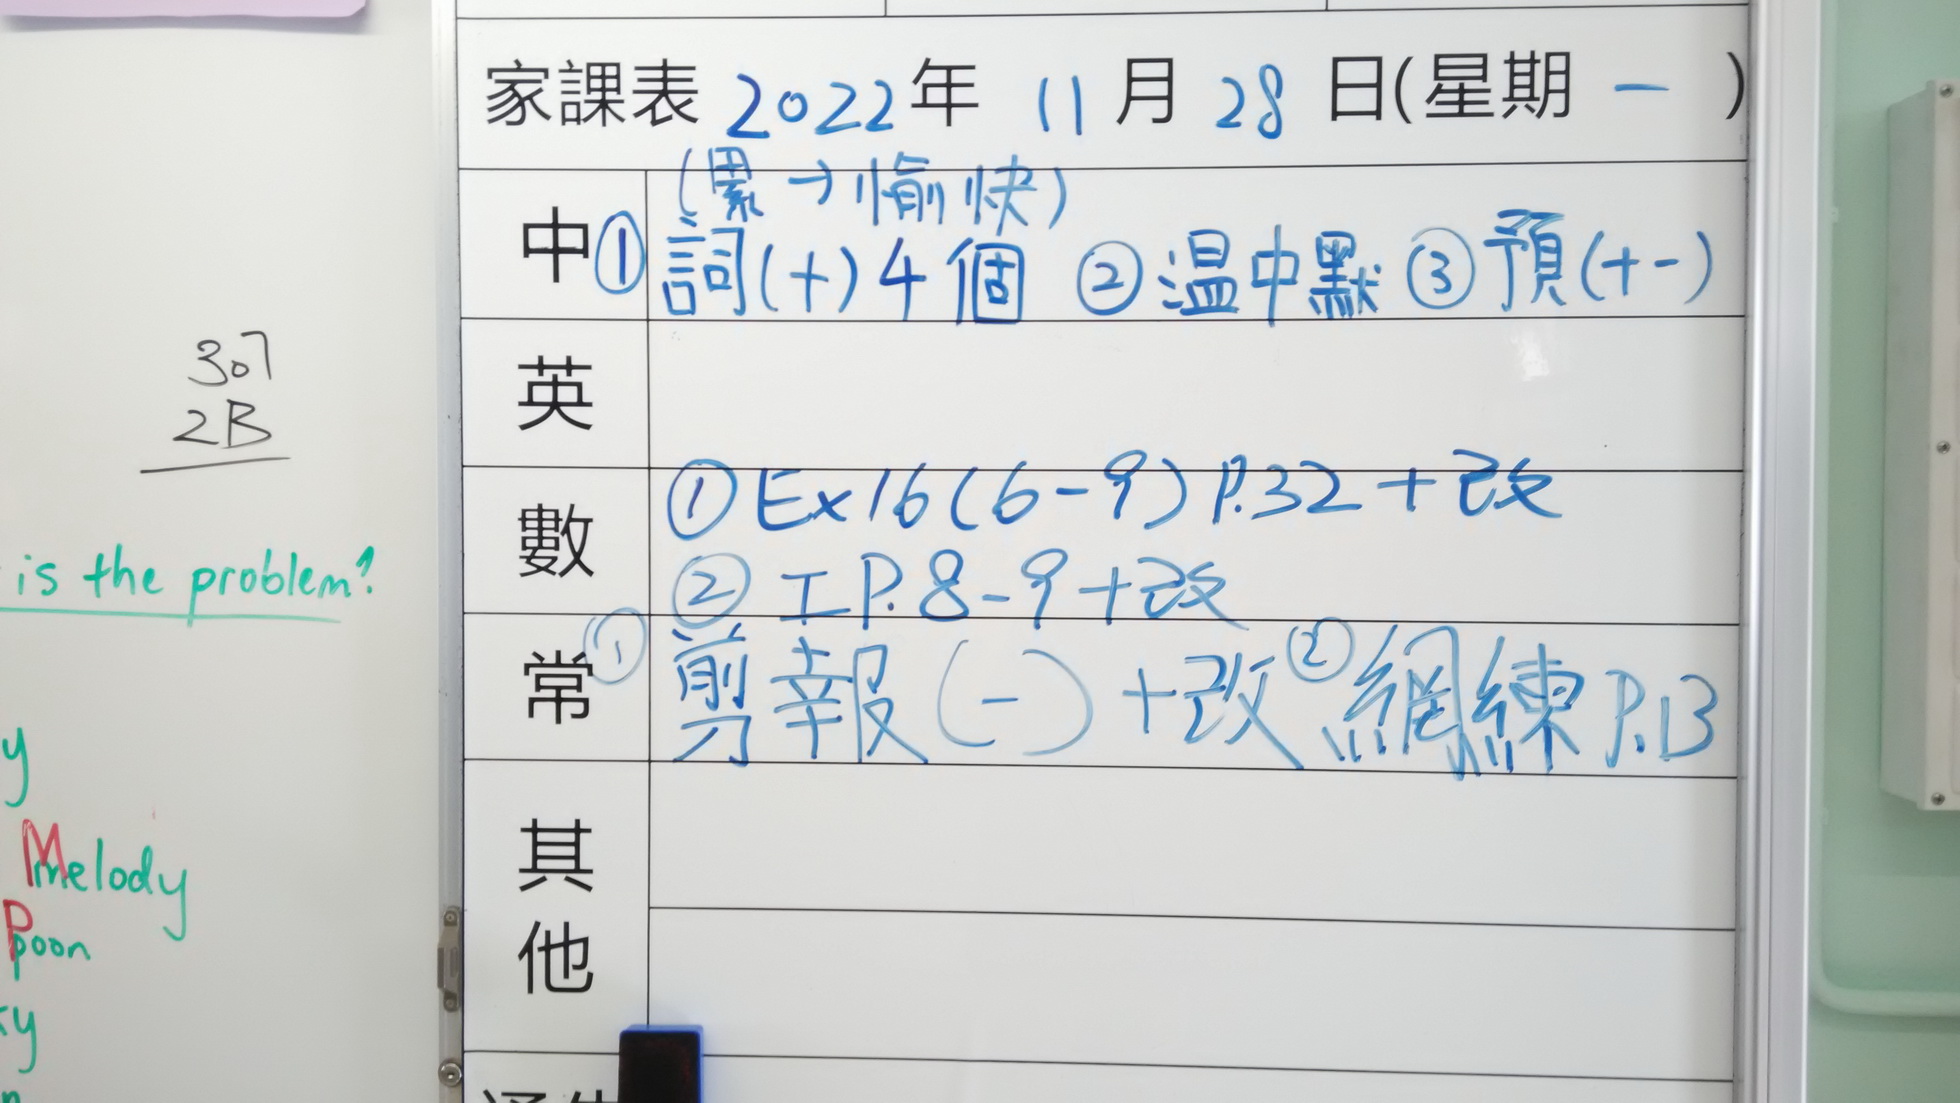 家課表 2022年 11月 28日(星期一)
中
(累→愉快)
① 詞(十)4個 ②温中默 ③預(十一)
英
數
① Ex16(6-9)P.32+改
② 工P.8-9+改
常
① 剪報(一)+改 ②網練P.13
其他
307
2B
is the problem?
y
Melody
Poon
ky